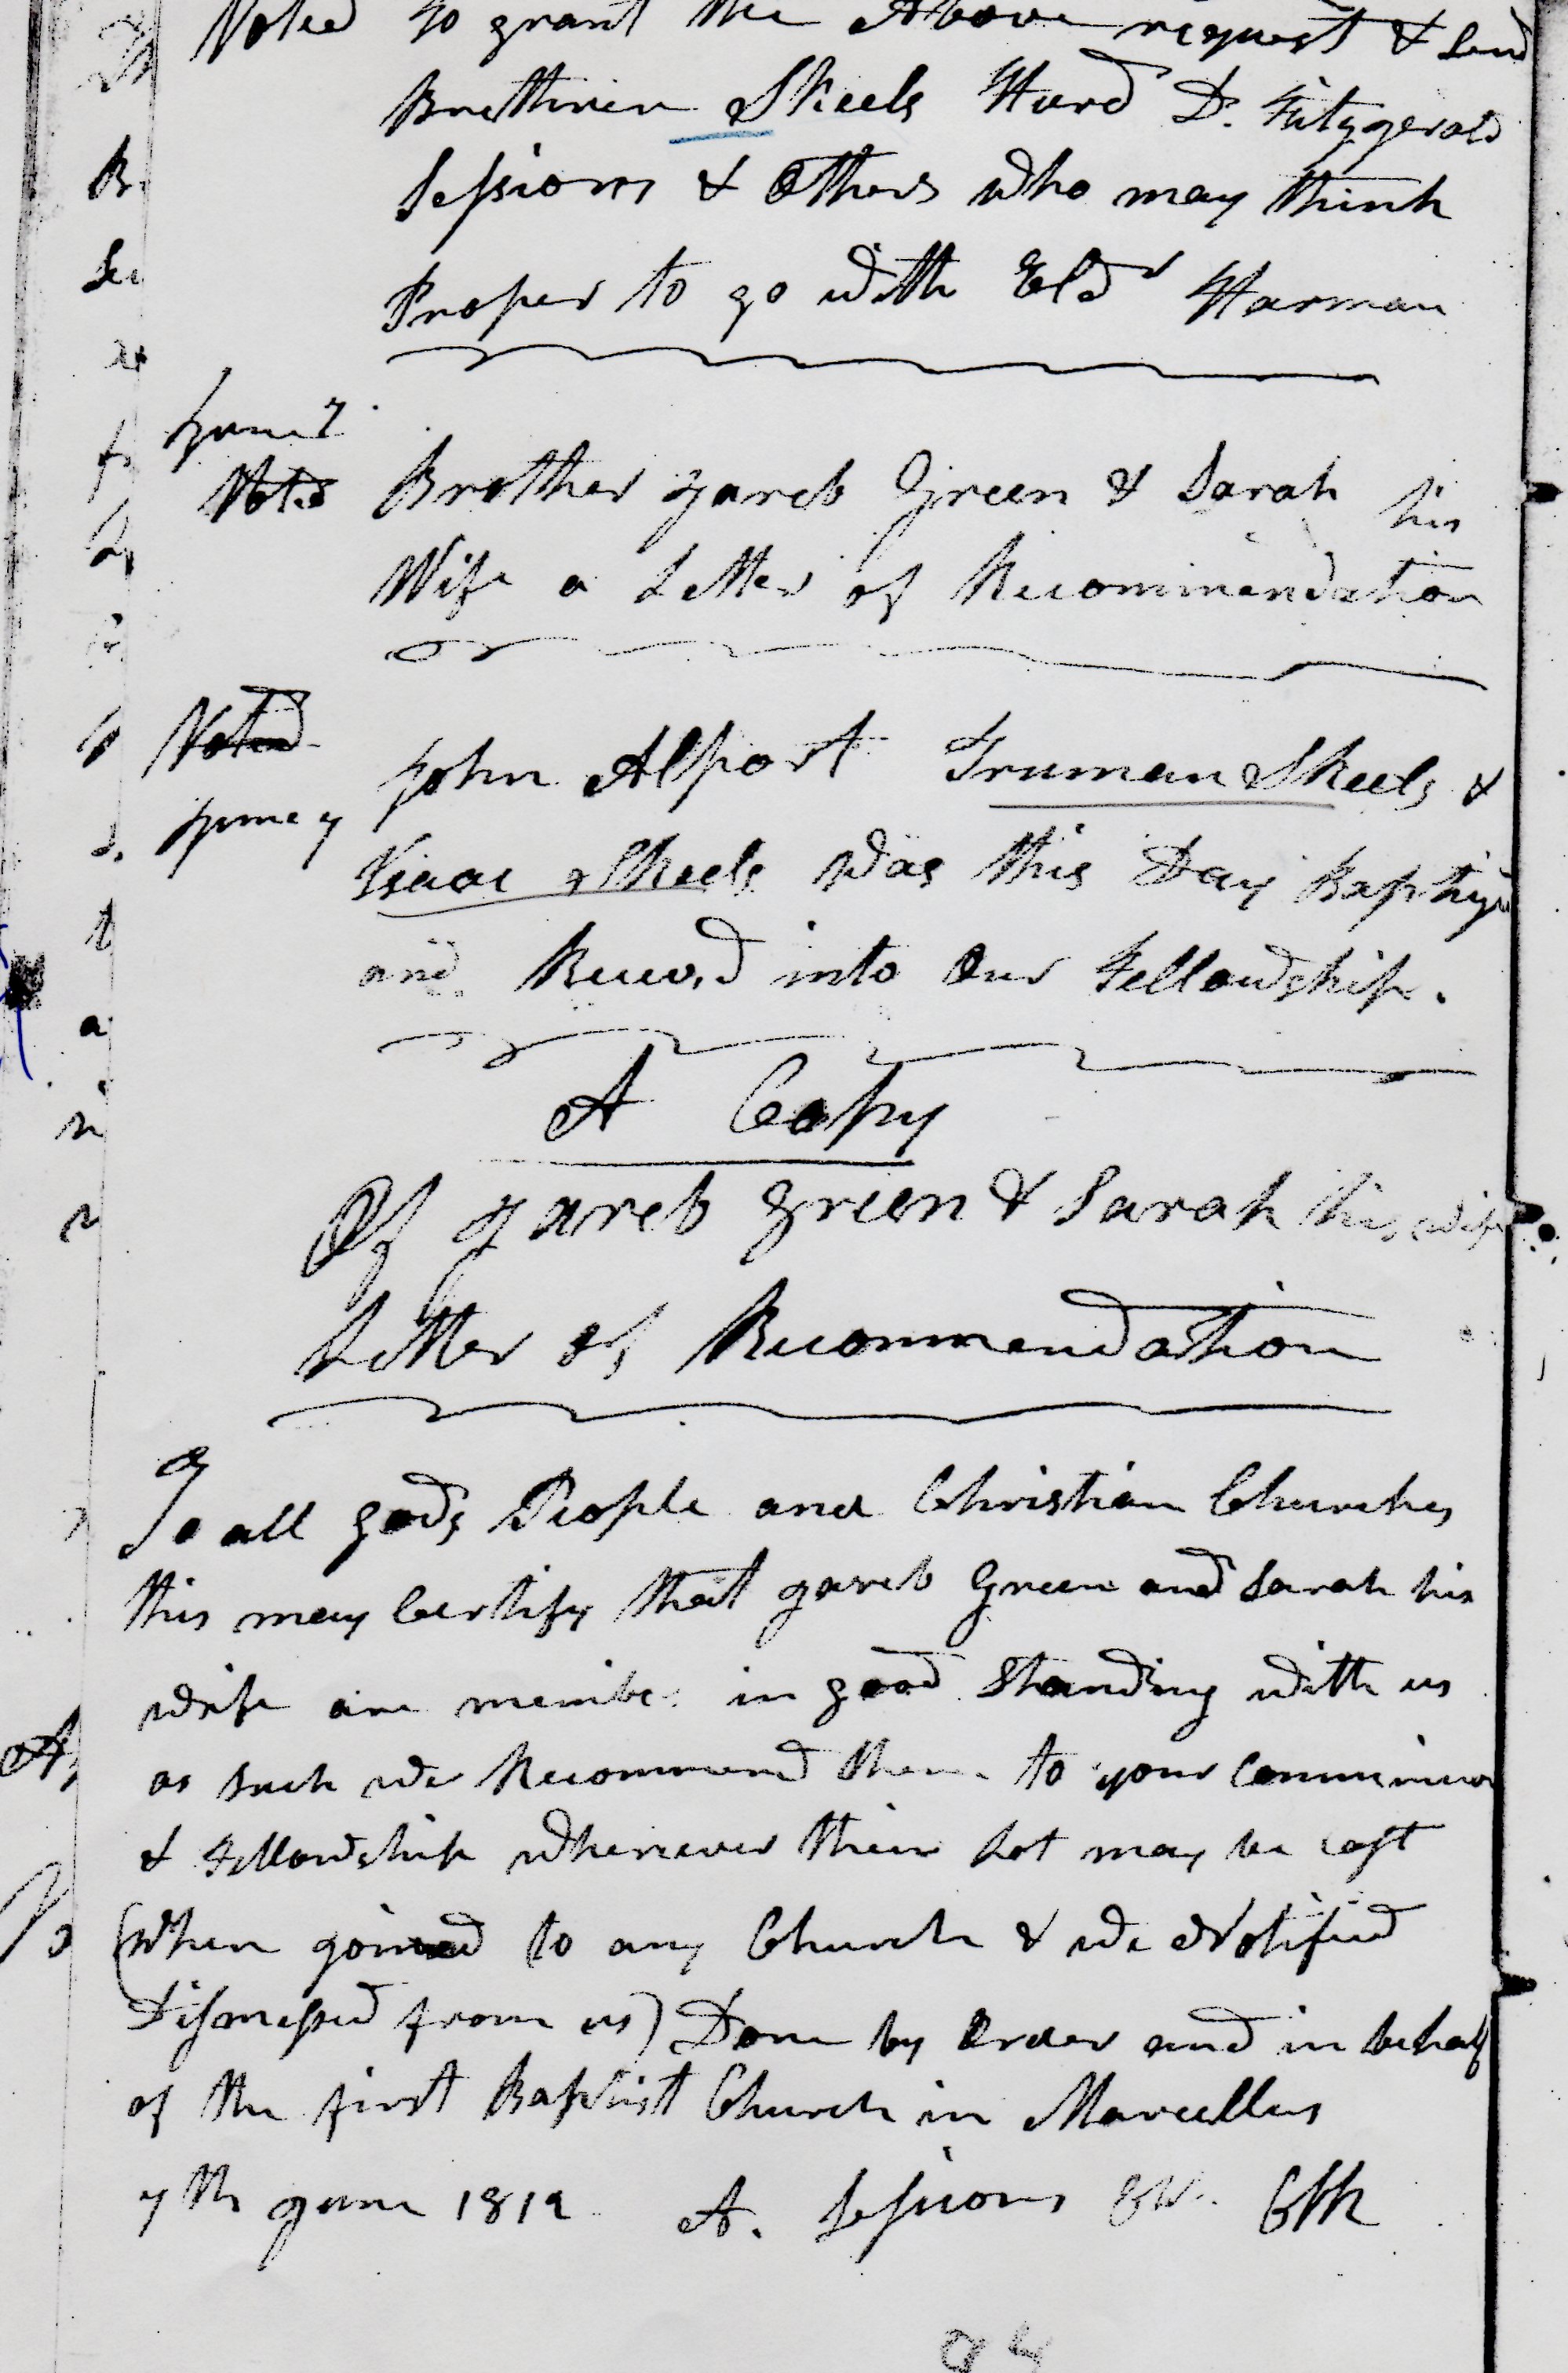 Voted to grant the Above request & Send
Brethren Skeels Hurd D. Fitzgerald
Sessions & Others who may think
Proper to go with Eldr Harman
June 7
Voted Brother Jareb Green & Sarah his
Wife a Letter of Recommendation
Voted
John Alport Truman Skeels &
June 7
Isaac Skeels was this Day Baptiz
and Received into Our Fellowship.
A Copy
Of Jareb Green & Sarah his wife
Letter of Recommendation
To all gods People and Christian Churches
this may Certify that Jareb Green and Sarah his
wife are membe in good Standing with us
as such we Recommend them to your Communion
& Fellowship whenever their Lot may be cast
(When Joined to any Church & we Notified
Dismissed from us) Done by Order and in behalf
of the first Baptist Church in Marcellus
7th June 1812 A. Sessions Clk